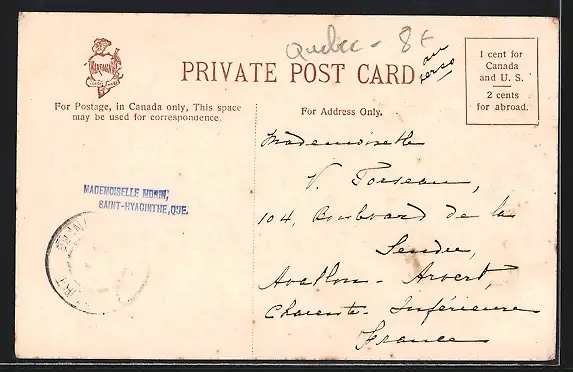 Quebec - 8 €
au
verso
PRIVATE POST CARD
1 cent for
Canada
and U. S.
2 cents
for abroad.
For Postage, in Canada only, This space
may be used for correspondence.
For Address Only.
Mademoiselle
V.
104, Boulevard de la
Avallon - Arvert,
Charente - Inférieure
France
MADEMOISELLE MORIN,
SAINT-HYACINTHE, QUE.